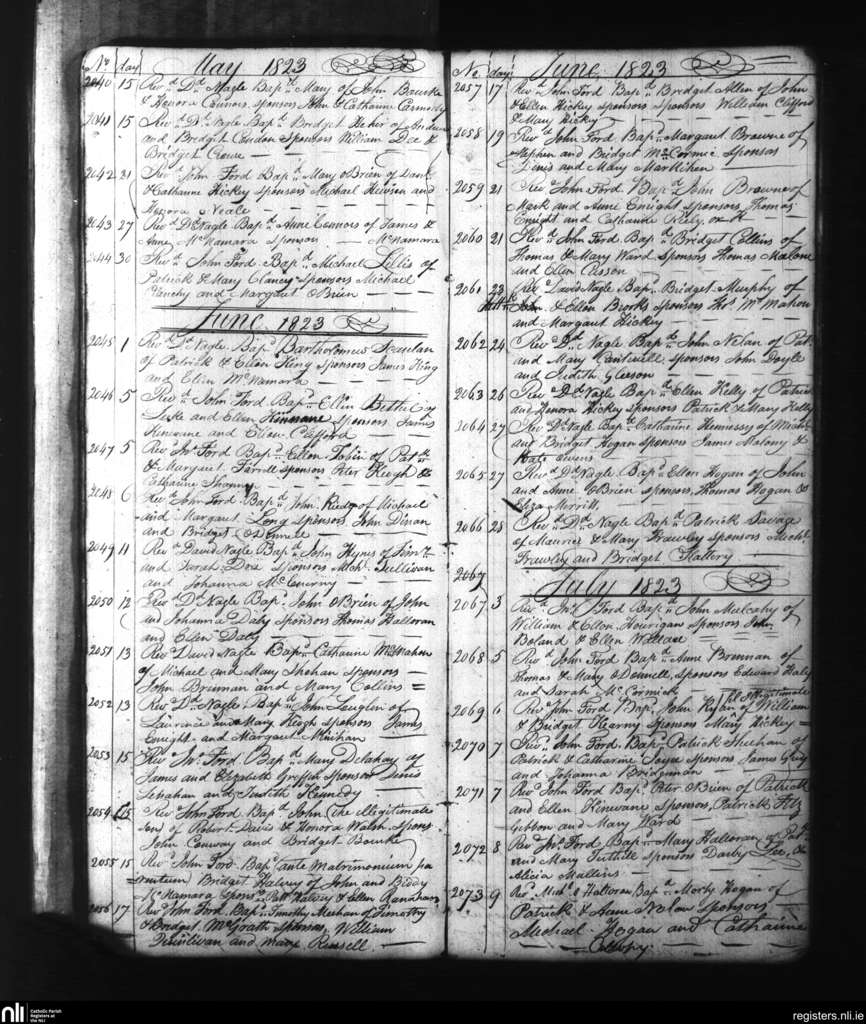 No. day May 1823
2040 15 Revd Dd Nagle Bapd Mary of John Bourke
& Honora Connors Sponsors John & Catharine Carmody
2041 15 Revd Dd Nagle Bapd Bridget of
and Bridget Condon Sponsors William Dee &
Bridget Crowe
2042 21 Revd John Ford Bapd Mary OBrien of Danl
& Catharine Hickey Sponsors Michael and
Honora Neale
2043 27 Revd Dd Nagle Bapd Anne Connors of James &
Anne McNamara Sponson McNamara
2044 30 Revd John Ford Bapd Michael Lillis of
Patrick & Mary Clancy Sponsors Michael
Clanchy and Margaret OBrien
June 1823
2045 1 Revd Dd Nagle Bapd Bartholomew Scanlan
of Patrick & Ellen King Sponsors James King
and Ellen McNamara
2046 5 Revd John Ford Bapd Ellen of
Luke and Ellen Kinnane Sponsors James
Kinerane and Ellen Clifford
2047 5 Revd Jno Ford Bapd Ellen Tobin of Patk
& Margaret Farrell Sponsors Peter Keogh &
Catharine
2048 6 Revd John Ford Bapd John of Michael
and Margaret Long Sponsors John Dinan
and Bridget ODonnell
2049 11 Revd David Nagle Bapd John Hynes of Timy
and Sarah Sponsors Mich Sullivan
and Johanna McEnerny
2050 12 Revd Dd Nagle Bapd John OBrien of John
and Johanna Daly Sponsors Thomas Halloran
and Ellen Daly
2051 13 Revd David Nagle Bapd Catharine McMahon
of Michael and Mary Shehan Sponsors
John Brennan and Mary Collins
2052 13 Revd Dd Nagle Bapd John Laughlin of
Lawrence and Mary Keogh Sponsors James
Enright and Margaret Minihan
2053 15 Revd Jno Ford Bapd Mary Delahay of
James and Elizabeth Griffin Sponsors Dinis
Lenahan and Judith Kennedy
2054 15 Revd John Ford Bapd John (the illegitimate
son) of Robert Davis & Honora Walsh Spons
John Conway and Bridget Bourke
2055 15 Revd John Ford Bapd (ante Matrimonium pa
rentum) Bridget Halvey of John and Biddy
McNamara Spons Patt Halvey & Ellen
2056 17 Revd John Ford Bapd Timothy Meehan of Timothy
& Bridget McGrath Sponsors William
Quinlivan and Mary Russell
No. day June 1823
2057 17 Revd John Ford Bapd Bridget Allen of John
& Ellen Hickey Sponsors Sponsors William Clifford
& Mary Hickey
2058 19 Revd John Ford Bapd Margaret Browne of
Stephen and Bridget McCormic Sponsors
Dinis and Mary
2059 21 Revd John Ford Bapd John Browne of
Mark and Anne Enright Sponsors Thomas
Enright and Catharine Kiely
2060 21 Revd John Ford Bapd Bridget Collins of
Thomas & Mary Ward Sponsors Thomas Malone
and Ellen
2061 23 Revd David Nagle Bapd Bridget Murphy of
John & Ellen Brooks Sponsors Thos McMahon
and Margaret Hickey
2062 24 Revd Dd Nagle Bapd John Nelan of Pat
and Mary Cantwell Sponsors John Doyle
and Judith Gleeson
2063 26 Revd Dd Nagle Bapd Ellen Kelly of Patrick
and Honora Hickey Sponsors Patrick & Mary Kelly
2064 27 Revd Dd Nagle Bapd Catharine Hennessy of Michl
and Bridget Hogan Sponsors James Malony &
Kate Owens
2065 27 Revd Dd Nagle Bapd Ellen Hogan of John
and Anne OBrien Sponsors Thomas Hogan &
Eliza Merritt
2066 28 Revd Dd Nagle Bapd Patrick Savage
of Maurice & Mary Frawley Sponsors Michl
Frawley and Bridget Slattery
2067 July 1823
2067 3 Revd Jno Ford Bapd John Mulcahy of
William & Ellen Hourigan Sponsors John
Boland & Ellen Wallace
2068 5 Revd John Ford Bapd Anne Brennan of
Thomas & Mary ODonnell Sponsors Edward Healy
and Sarah McCormick
2069 6 Revd John Ford Bapd John Ryan (illegitimate) of William
& Bridget Kearny Sponsors Mary Hickey
2070 7 Revd John Ford Bapd Patrick Sheehan of
Patrick & Catharine Joyce Sponsors James Guiry
and Johanna Bridgeman
2071 7 Revd John Ford Bapd Peter OBrien of Patrick
and Ellen Kinevane Sponsors Patrick Fitz
Gibbon and Mary Ward
2072 8 Revd Jno Ford Bapd Mary Halloran of Patk
and Mary Tuthill Sponsors Darby Lee &
Alicia Mullins
2073 9 Revd Michl O Halloran Bapd Morty Hogan of
Patrick & Anne Nelan Sponsors
Michael Hogan and Catharine
nli Catholic Parish
Registers at
the NLI
registers.nli.ie